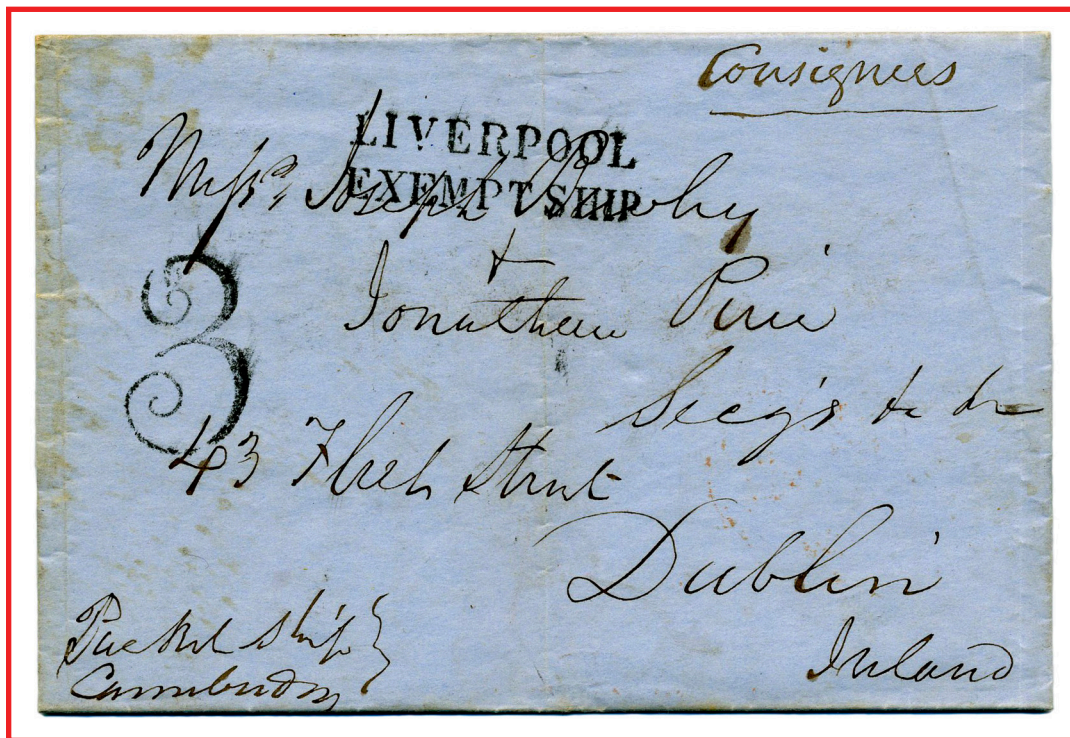 Consignees
LIVERPOOL
EXEMPT SHIP
Messrs, Joseph Bewley
+
Jonathan Pim
3
Secy's
43 Fleet Street
Dublin
Ireland
Packet Ship